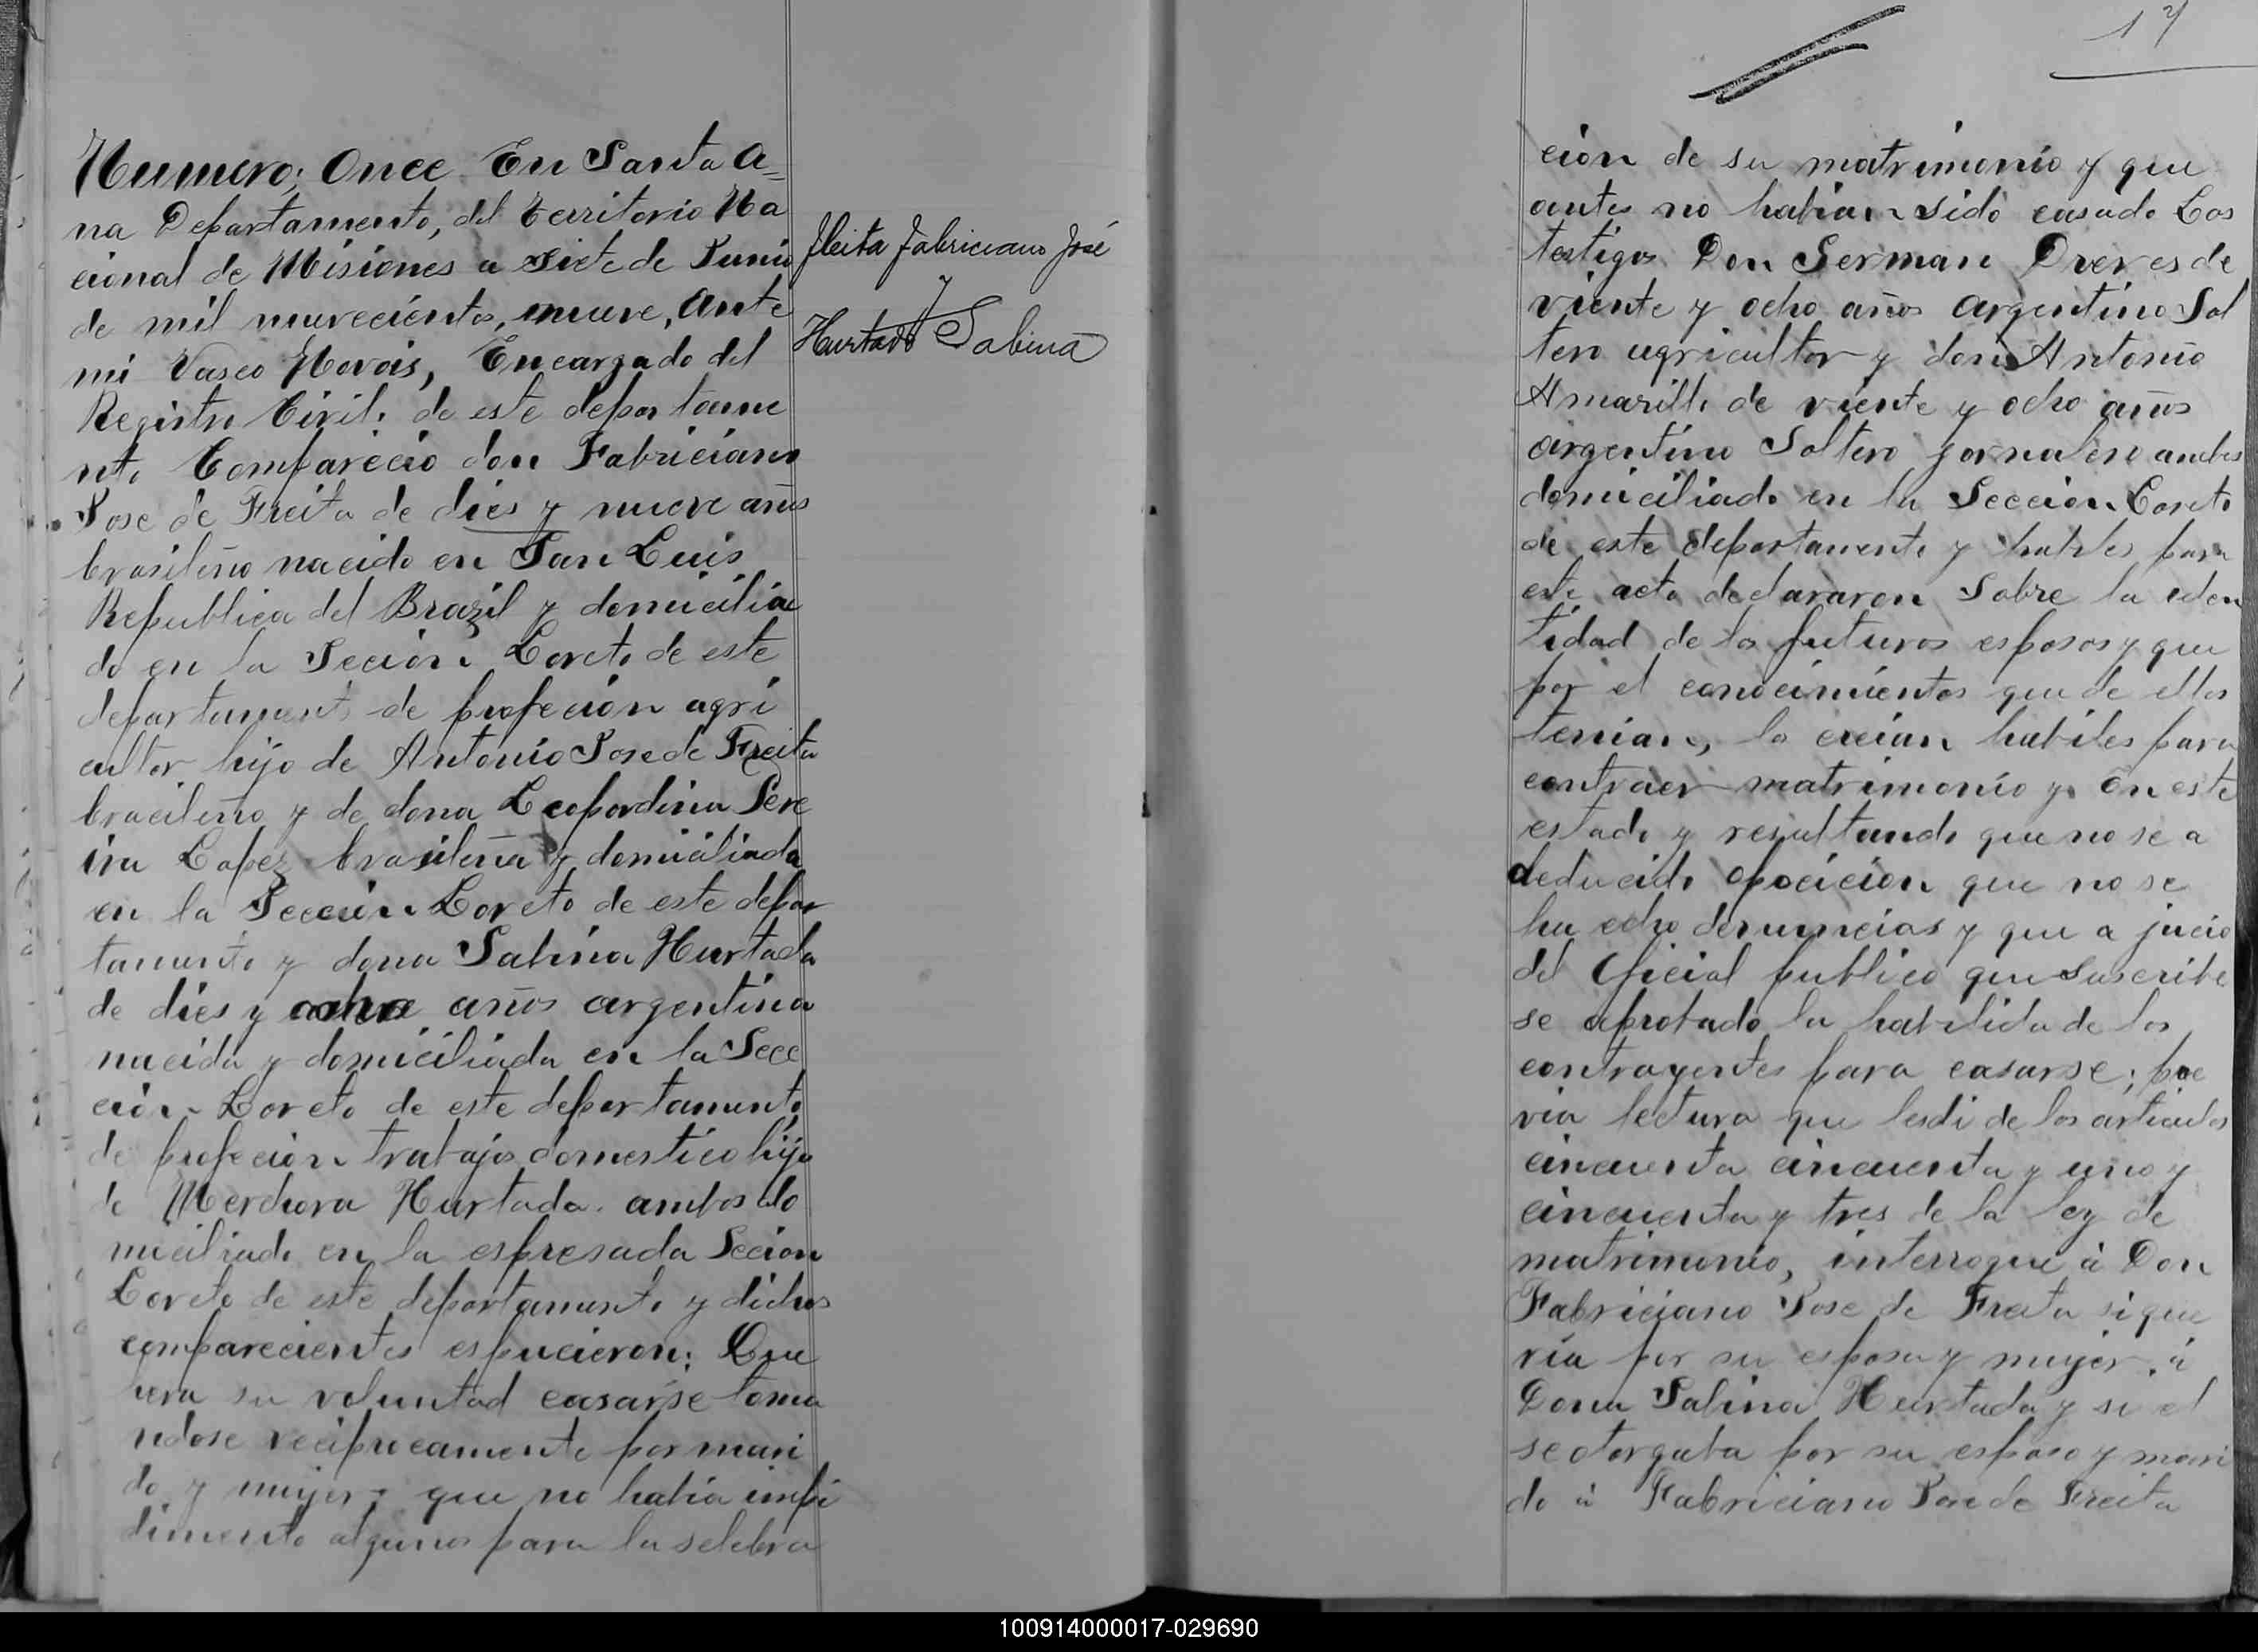 Numero; Once En Santa A=
na Departamento, del Territorio Na
cional de Misiones a siete de Junio
de mil nuvecientos, nueve, ante
mi Vasco Novais, Encargado del
Registro Civil, de este departame
nto Comparecio don Fabriciano
Jose de Freita de dies y nueve años
brasileño nacido en San Luis
Republica del Brazil y domicilia
do en la Seción Loreto de este
departamento de profeción agri
cultor hijo de Antonio Jose de Freita
bracileño y de dona Leopordina Pere
ira Lopez brasileña y domiciliada
en la Sección Loreto de este depar
tamento y dona Sabina Hurtada
de dies y ocho años argentina
nacida y domiciliada en la Secc
ción Loreto de este departamento
de profeción trabajos domestico hija
de Merchora Hurtada. ambos do
miciliado en la espresada Secion
Loreto de este departamento y dichos
comparecientes espucieron; Que
hera su voluntad casarse toma
ndose reciprocamente por mari
do y mujer; que no habia impi
dimento algunos para la selebra
Fleita Fabriciano José
y
Hurtado Sabina
17
ción de su matrimonio y que
antes no habian sido casado Los
testigos Don German Dreres de
viente y ocho años argentino Sol
tero agricultor y don Antonio
Amarillo de viente y ocho años
argentino Soltero jornalero ambos
domiciliado en la Seccion Loreto
de este departamento y habiles para
este acto declararon Sobre la iden
tidad de los futuros esposos y que
por el conocimientos que de ellos
tenian, lo creian habiles para
contraer matrimonio y en este
estado y resultando que no se a
deducido opocicion que no se
ha echo denuncias y que a juicio
del Oficial publico que Suscribe
se aprobado la habilida de los
contrayentes para casarse; pre
via lectura que lesdi de los articulos
cincuenta cincuenta y uno y
cincuenta y tres de la ley de
matrimonio, interrogue à Don
Fabriciano Jose de Freita si que
ria por su esposa y mujer à
Dona Sabina Hurtada y si el
se otorgaba por su esposo y mari
do à Fabriciano Jose de Freita
100914000017-029690